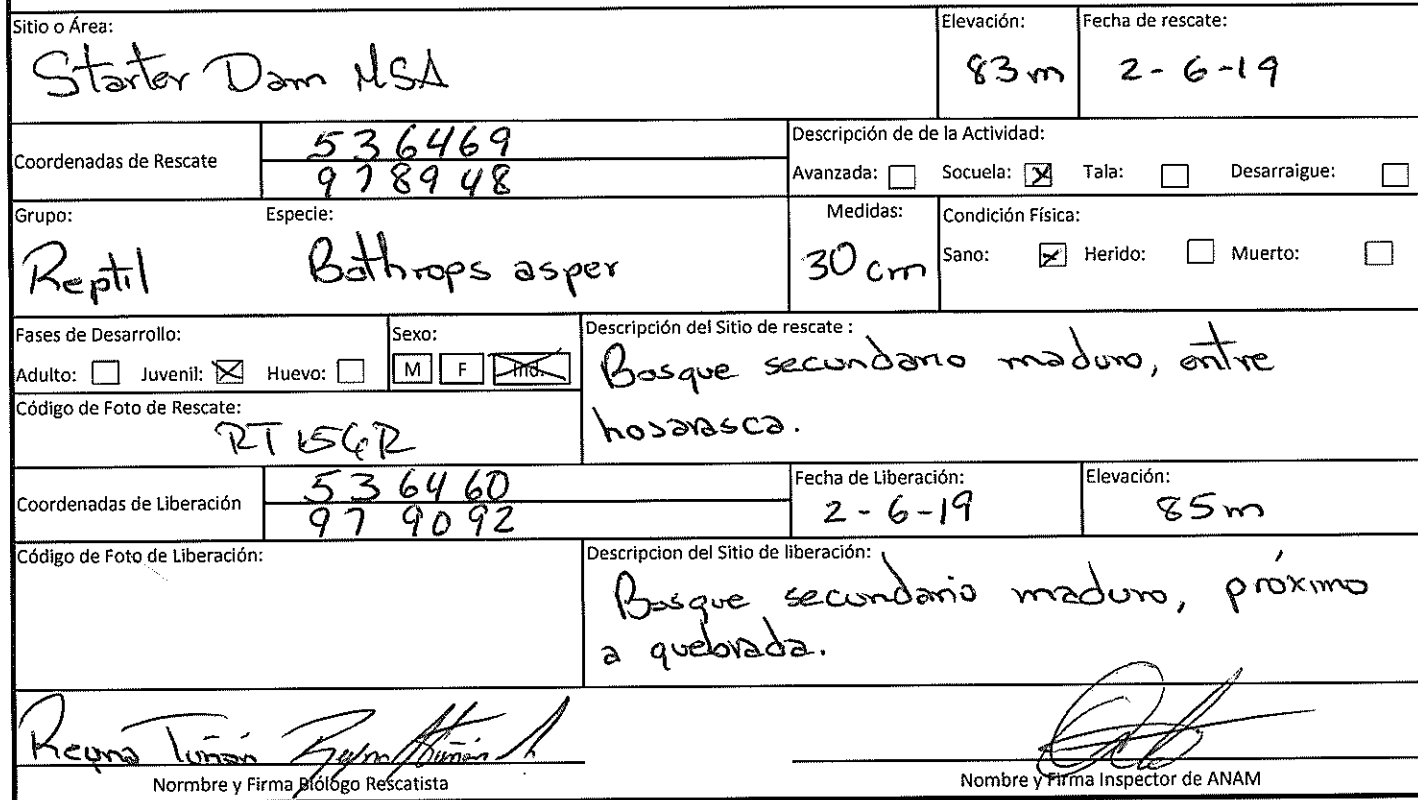 Sitio o Área:
Starter Dam MSA
Elevación:
83 m
Fecha de rescate:
2-6-19
Coordenadas de Rescate
536469
978948
Descripción de de la Actividad:
Avanzada: Socuela: Tala: Desarraigue:
Grupo:
Reptil
Especie:
Bothrops asper
Medidas:
30 cm
Condición Física:
Sano: Herido: Muerto:
Fases de Desarrollo:
Adulto: Juvenil: Huevo:
Sexo:
M F Ind.
Descripción del Sitio de rescate :
Bosque secundario maduro, entre
hosarasca.
Código de Foto de Rescate:
Coordenadas de Liberación
536460
979092
Fecha de Liberación:
2-6-19
Elevación:
85 m
Código de Foto de Liberación:
Descripcion del Sitio de liberación:
Bosque secundario maduro, próximo
a quebrada.
Reyna Tuñón
Normbre y Firma Biólogo Rescatista
Nombre y Firma Inspector de ANAM